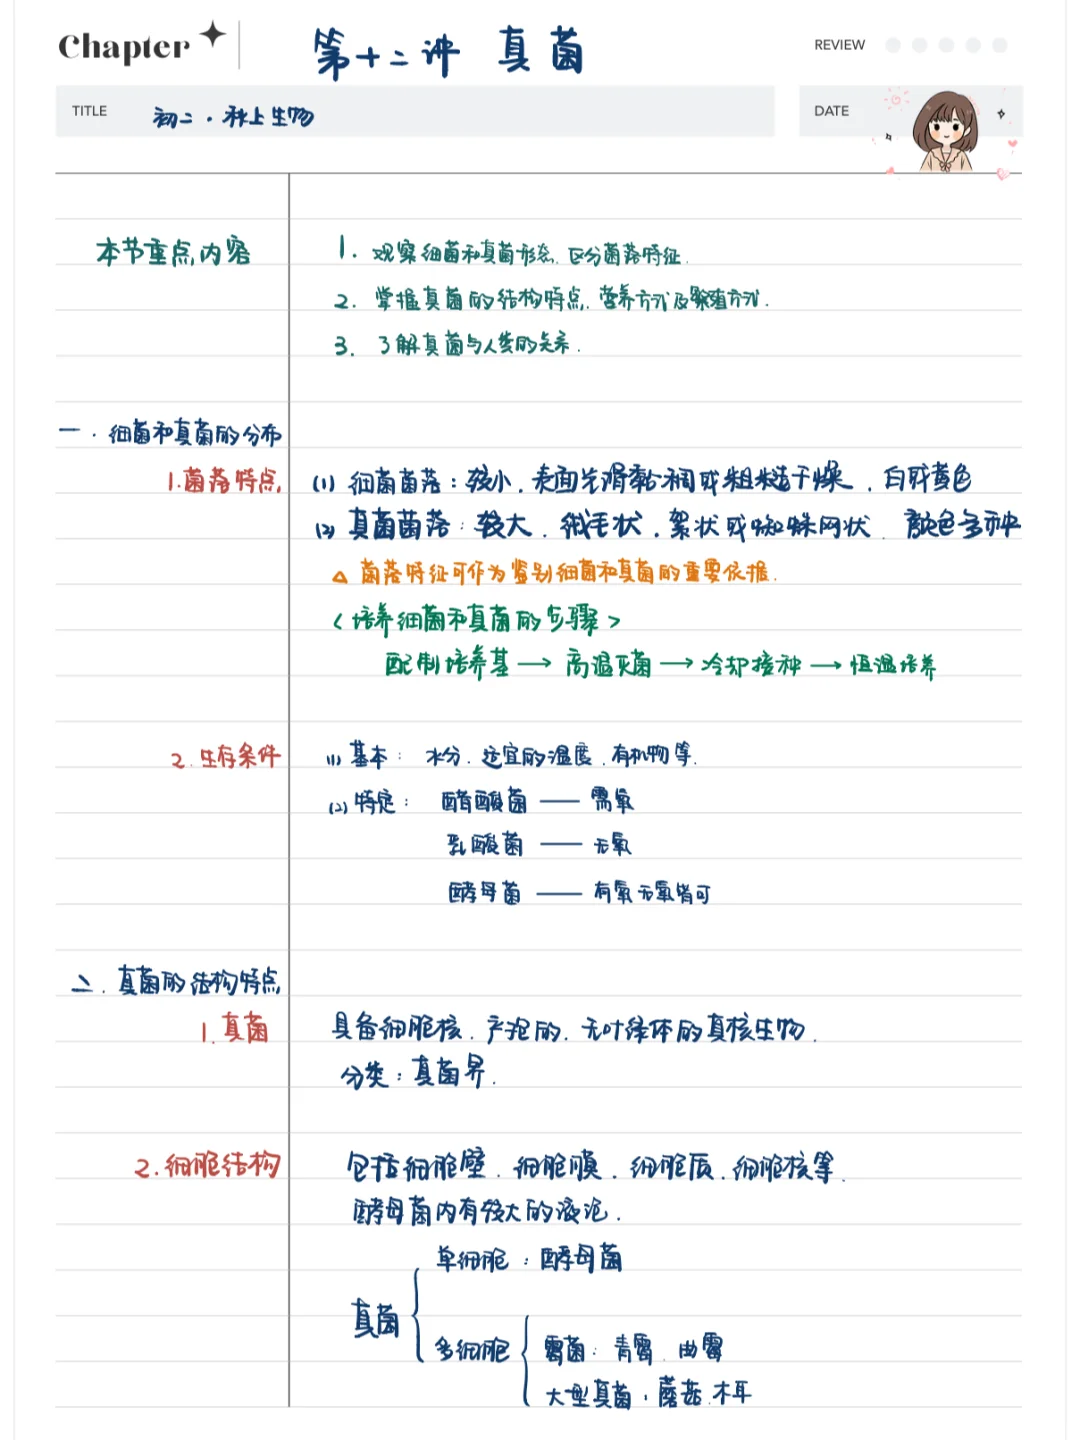 Chapter
第十二讲 真菌
REVIEW
TITLE 初二·秋上生物
DATE
本节重点内容
1. 观察细菌和真菌形态、区分菌落特征.
2. 掌握真菌的结构特点、营养方式及繁殖方式.
3. 了解真菌与人类的关系.
一.细菌和真菌的分布
1.菌落特点
(1) 细菌菌落:较小、表面光滑黏稠或粗糙干燥、白或黄色
(2) 真菌菌落:较大、绒毛状、絮状或蜘蛛网状、颜色多种
△ 菌落特征可作为鉴别细菌和真菌的重要依据.
<培养细菌和真菌的步骤>
配制培养基→高温灭菌→冷却接种→恒温培养
2.生存条件
(1) 基本:水分、适宜的温度、有机物等.
(2) 特定:醋酸菌——需氧
乳酸菌——无氧
酵母菌——有氧无氧皆可
二.真菌的结构特点
1.真菌
具备细胞核、产孢的、无叶绿体的真核生物.
分类:真菌界.
2.细胞结构
包括细胞壁、细胞膜、细胞质、细胞核等.
酵母菌内有较大的液泡.
真菌
单细胞:酵母菌
多细胞
霉菌:青霉、曲霉
大型真菌:蘑菇、木耳